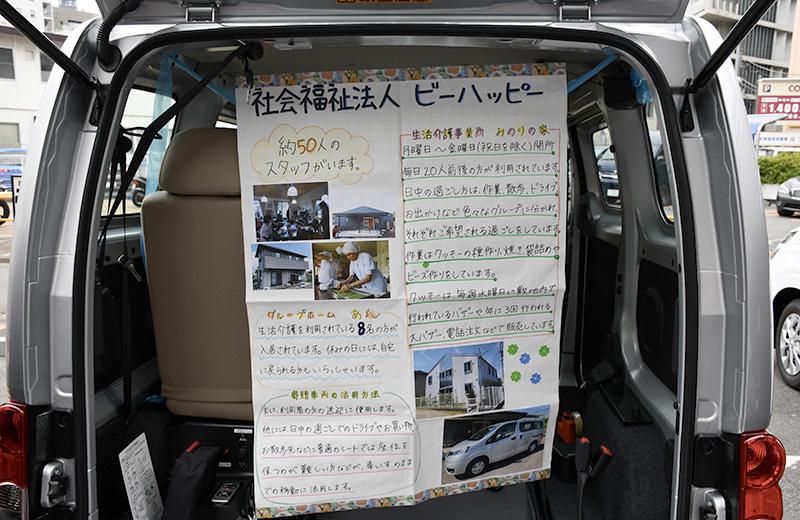 社会福祉法人 ビーハッピー
約50人の
スタッフがいます。
グループホーム あん
生活介護を利用されている8名の方が
入居されています。休みの日には、自宅
に戻られる方もいらっしゃいます。
寄贈車両の活用方法
主に、利用者の方の送迎に使用します。
他には、日中の過ごしでのドライブやお買い物、
お散歩先などに普通のシートでは座位を
保つのが難しい方などが、車いすのまま
での移動に活用します。
生活介護事業所 みのりの家
月曜日〜金曜日(祝日を除く)開所
毎日20人前後の方が利用されています。
日中の過ごし方は、作業、散歩、ドライブ、
お出かけなど色々なグループに分かれ、
それぞれご希望される過ごしをしています。
作業はクッキーの種作り、焼き、袋詰めや
ビーズ作りをしています。
クッキーは、毎週水曜日に敷地内で
行われているバザーや年に3回行われる
大バザー、電話注文などで販売しています。
1,400